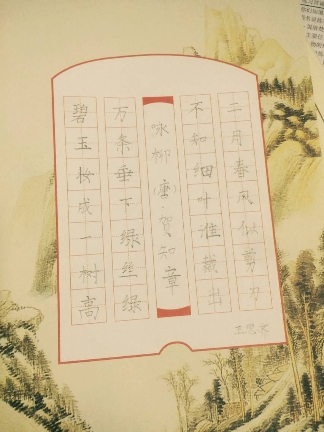 碧玉妆成一树高
万条垂下绿丝绿
咏柳 唐·贺知章
不知细叶谁裁出
二月春风似剪刀